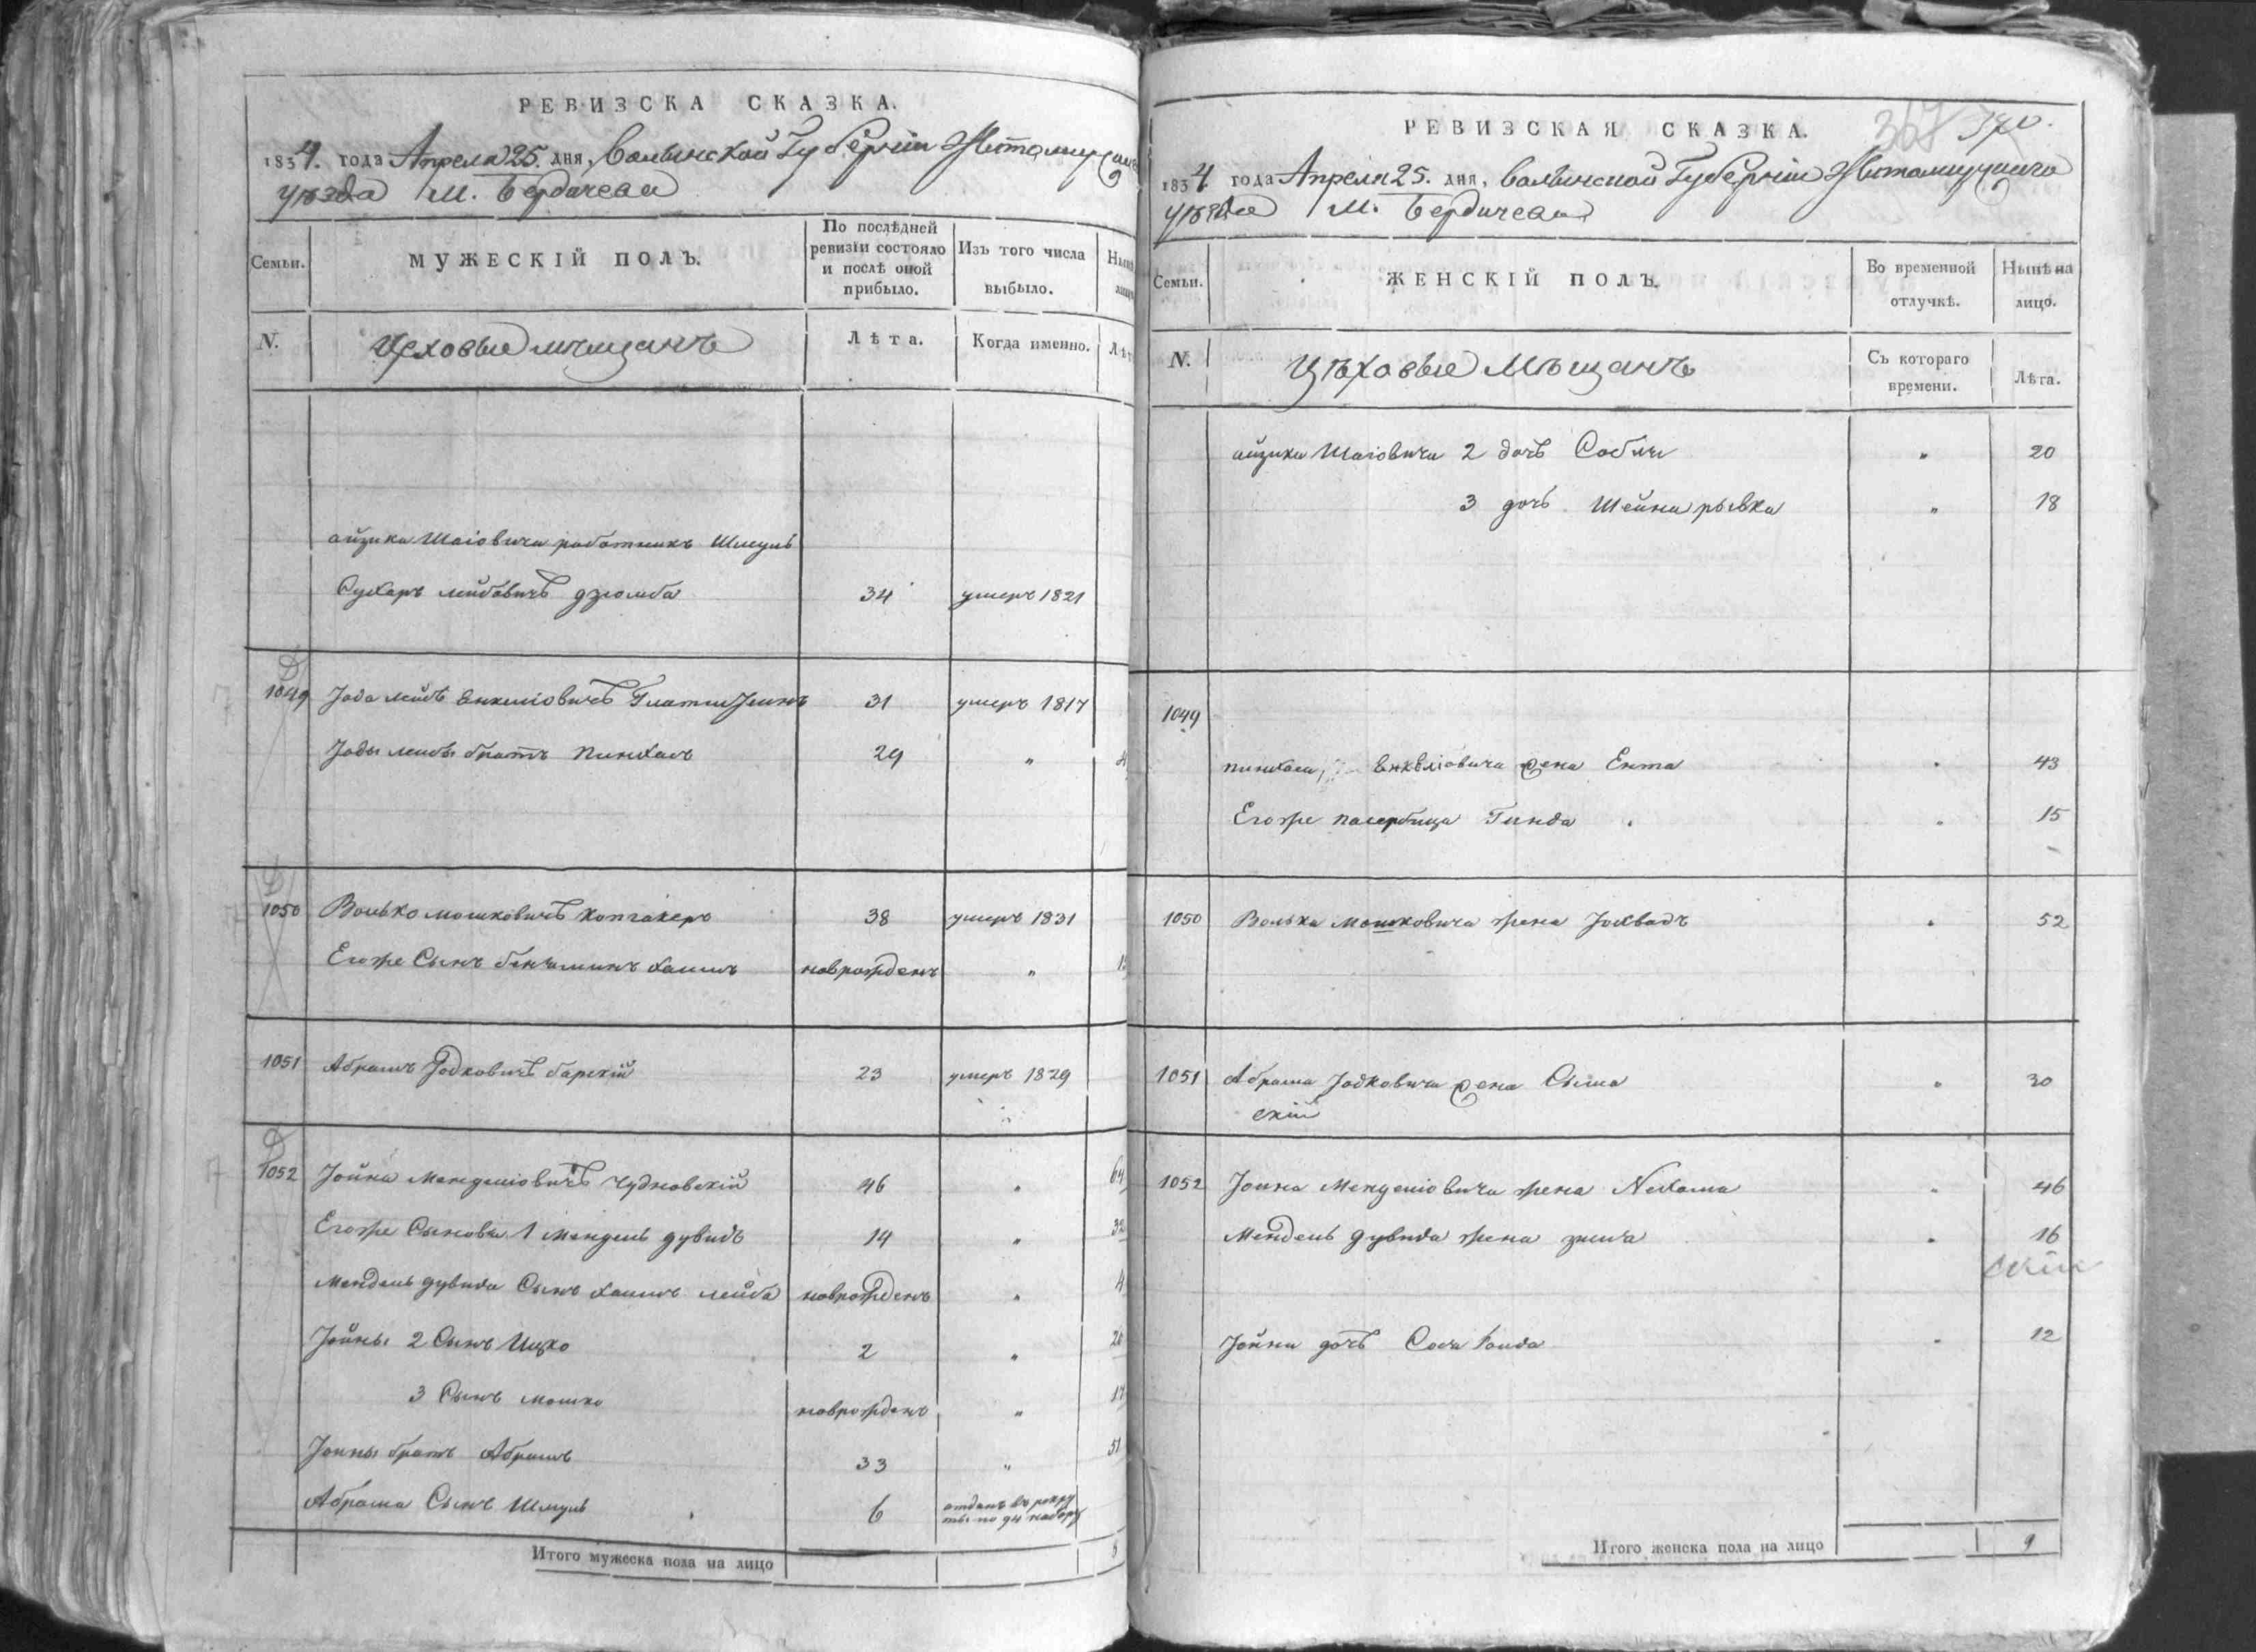 РЕВИЗСКА СКАЗКА.
1834. года Апреля 25. дня, Волынской Губернiи Житомирскаго
уѣзда М. Бердичева
Семьи.
МУЖЕСКІЙ ПОЛЪ.
По послѣдней ревизіи состояло и послѣ оной прибыло.
Изъ того числа выбыло.
N.
Цеховые мѣщанъ
Лѣта.
Когда именно.
айзика Шаіовича работникъ Шмуль
Сухаръ лейбовичъ дзюмба 34 умеръ 1821
1049 Іода лейбъ Енкеліовичъ 31 умеръ 1817
Іоды лейбы братъ Пинхасъ 29 "
1050 Волько мошковичъ 38 умеръ 1831
Егоже Сынъ бенюминъ хаимъ новрожденъ "
1051 Абрамъ Іодковичъ барскій 23 умеръ 1829
1052 Іойна Менделіовичъ Чудновскій 46 " 64
Егоже Сыновья 1 Мендель дувидъ 14 " 32
Мендель дувида Сынъ хаимъ лейба новрожденъ " 4
Іойны 2 Сынъ Ицко 2 " 20
3 Сынъ мошко новрожденъ " 17
Іоины братъ Абрамъ 33 " 51
Абрама Сынъ Шмуль 6 отданъ въ рекруты по 94 набору
Итого мужеска пола на лицо
РЕВИЗСКАЯ СКАЗКА.
367
1834 года Апреля 25. дня, Волынской Губернiи Житомирскаго
уѣзда М. Бердичева
Семьи.
ЖЕНСКІЙ ПОЛЪ.
Во временной отлучкѣ.
Нынѣ на лицо.
N.
Цѣховые Мѣщанъ
Съ котораго времени.
Лѣта.
айзика Шаіовича 2 дочь Собля " 20
3 дочь Шейна рывка " 18
1049
пинхаса Енкеліовича жена Ента " 43
Егоже пасербица Гинда " 15
1050 Волька Мошковича жена Іохвадъ " 52
1051 Абрама Іодковича жена Сыма " 30
скій
1052 Іоина Менделіовича жена Нехама " 46
Мендель дувида жена " 16
скій
Іойни дочь Сося " 12
Итого женска пола на лицо 9